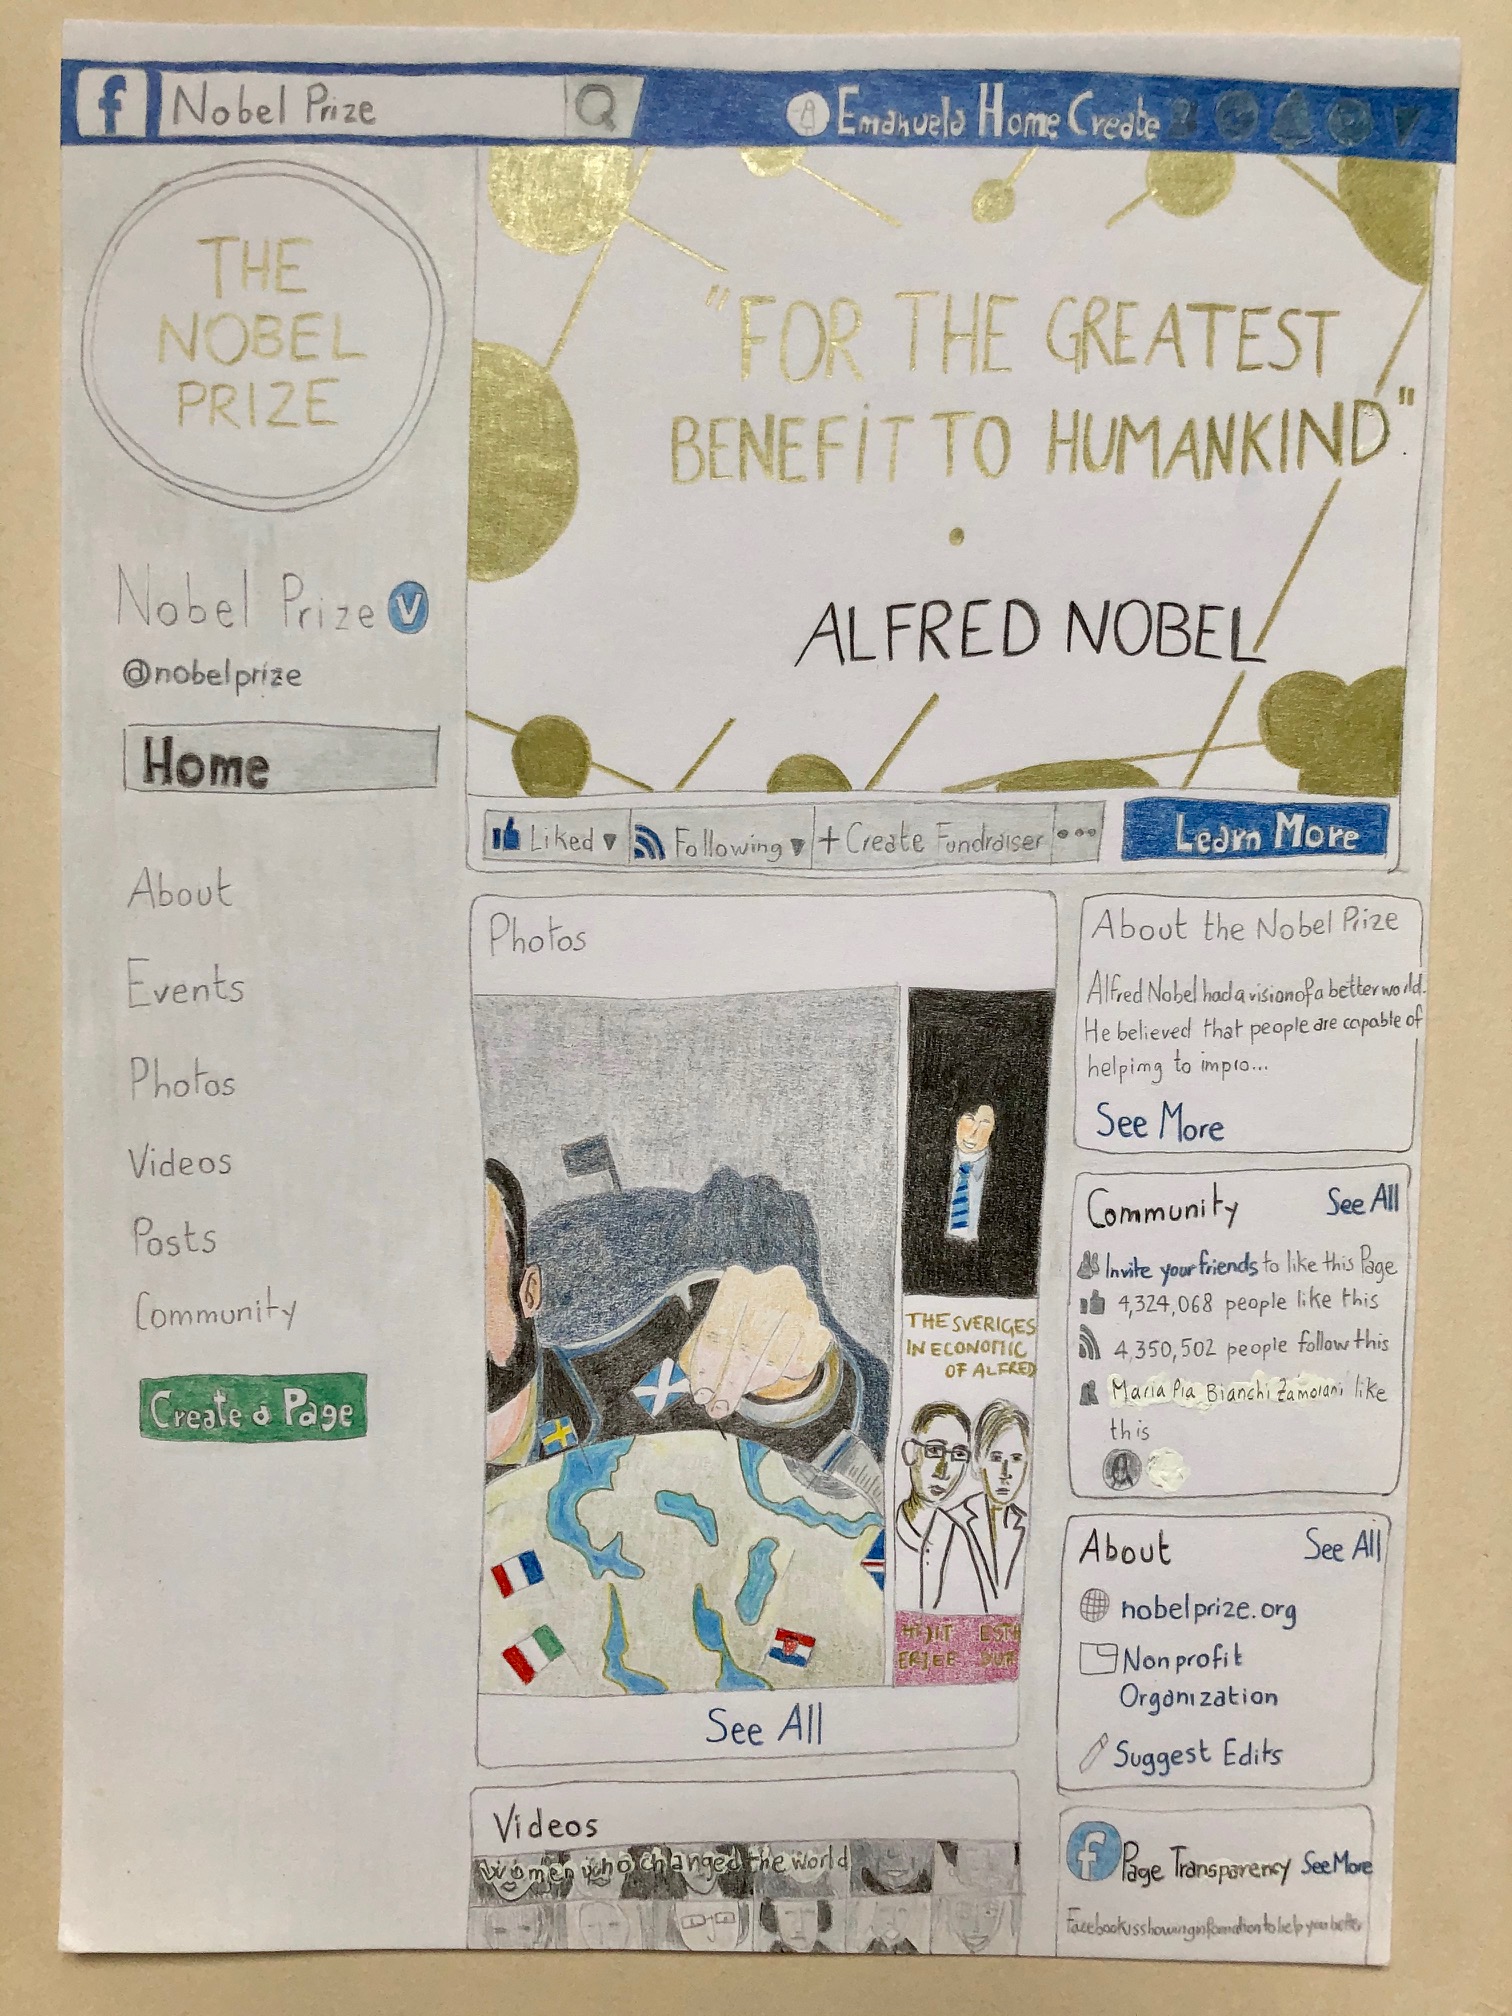 f Nobel Prize
Emanuela Home Create
THE
NOBEL
PRIZE
Nobel Prize V
@nobelprize
Home
About
Events
Photos
Videos
Posts
Community
Create a Page
"FOR THE GREATEST
BENEFiT TO HUMANKIND"
ALFRED NOBEL
Liked Following + Create Fundraiser ... Learn More
Photos
THE SVERIGES
IN ECONOMIC
OF ALFRED
See All
Videos
Women who changed the world
About the Nobel Prize
Alfred Nobel had a vision of a better world.
He believed that people are capable of
helping to impro...
See More
Community See All
Invite your friends to like this Page
4,324,068 people like this
4,350,502 people follow this
Maria Pia Bianchi Zamorani like
this
About See All
nobelprize.org
Nonprofit
Organization
Suggest Edits
f Page Transparency See More
Facebook is showing information to help you better